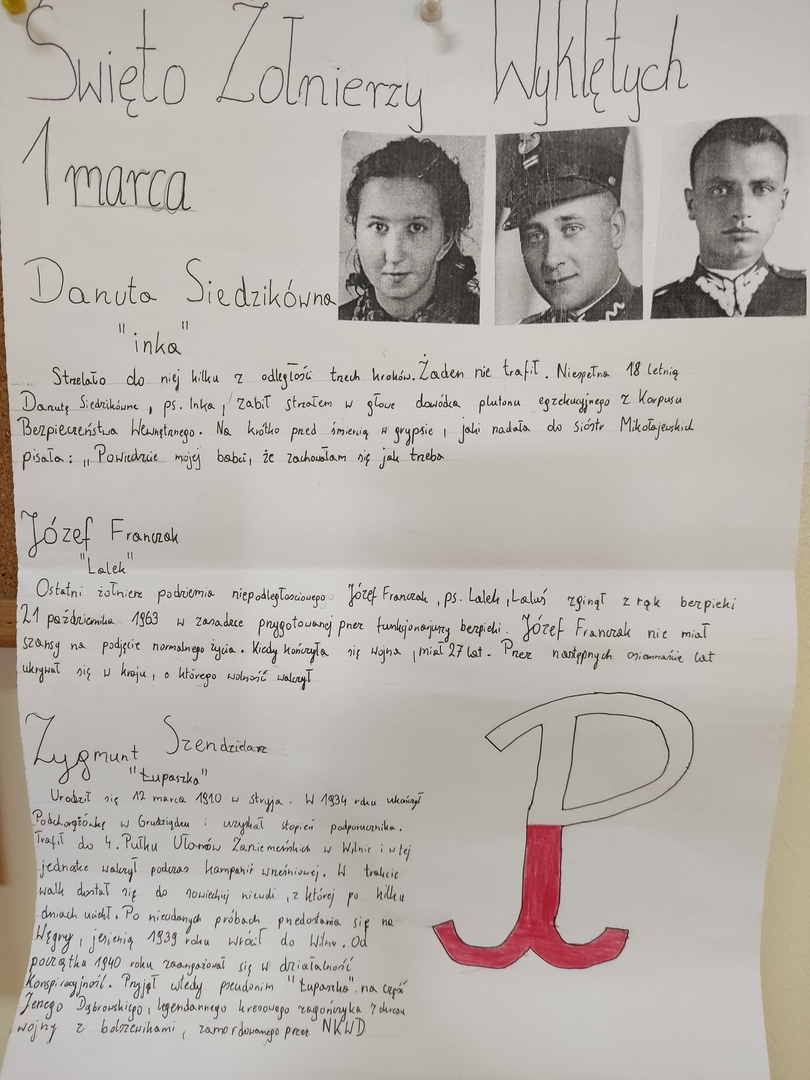 Święto Żołnierzy Wyklętych
1 marca
Danuta Siedzikówna
"inka"
Strzelało do niej kilku z odległości trzech kroków. Żaden nie trafił. Niespełna 18 letnią
Danutę Siedzikównę, ps. Inka, zabił strzałem w głowę dowódca plutonu egzekucyjnego z Korpusu
Bezpieczeństwa Wewnętrznego. Na krótko przed śmiercią w grypsie, jaki nadała do sióstr Mikołajewskich
pisała: „Powiedzcie mojej babci, że zachowałam się jak trzeba
Józef Franczak
"Lalek"
Ostatni żołnierz podziemia niepodległościowego Józef Franczak, ps. Lalek, Laluś zginął z rąk bezpieki
21 października 1963 w zasadzce przygotowanej przez funkcjonariuszy bezpieki. Józef Franczak nie miał
szansy na podjęcie normalnego życia. Kiedy kończyła się wojna, miał 27 lat. Przez następnych osiemnaście lat
ukrywał się w kraju, o którego wolność walczył
Zygmunt Szendzielarz
"Łupaszka"
Urodził się 12 marca 1910 w Stryja. W 1934 roku ukończył
Podchorążówkę w Grudziądzu i uzyskał stopień podporucznika.
Trafił do 4. Pułku Ułanów Zaniemeńskich w Wilnie i w tej
jednostce walczył podczas kampanii wrześniowej. W trakcie
walk dostał się do sowieckiej niewoli, z której po kilku
dniach uciekł. Po nieudanych próbach przedostania się na
Węgry, jesienią 1939 roku wrócił do Wilna. Od
początku 1940 roku zaangażował się w działalność
konspiracyjność. Przyjął wtedy pseudonim "Łupaszka" na cześć
Jerzego Dąbrowskiego, legendarnego kresowego zagończyka z okresu
wojny z bolszewikami, zamordowanego przez NKWD